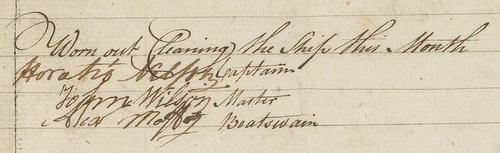 Worn out Cleaning the Ship this Month
Horatio Nelson Captain
John Wilson Master
Boatswain